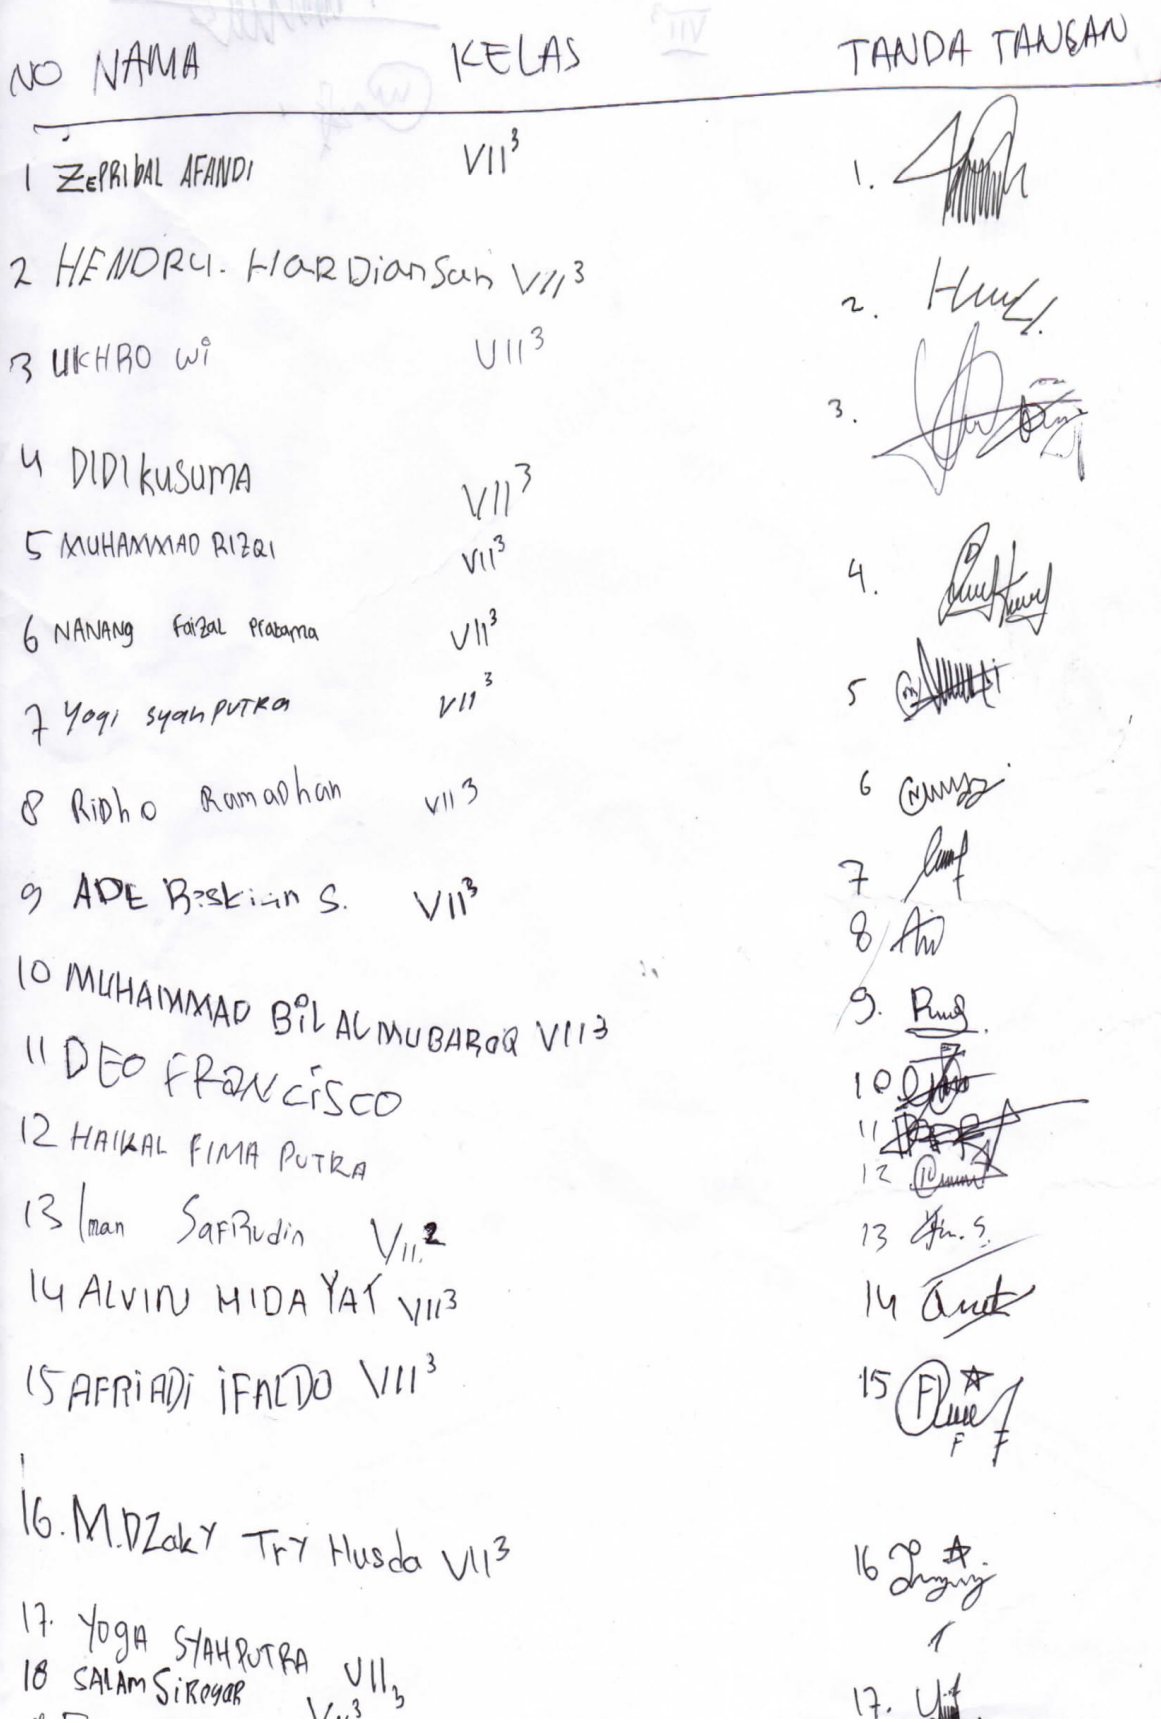 NO NAMA KELAS TANDA TANGAN
1 ZEPRIbAL AFANDI VII³ 1.
2 HENDRY. HARDianSah VII³ 2.
3 UKHRO Wi VII³ 3.
4 DIDI KUSUMA VII³
5 MUHAMMAD RIZQI VII³ 4.
6 NANANg FaiZaL Pratama VII³
7 Yogi syahPUTRa VII³ 5
8 RiDho RamaDhan VII³ 6
9 ADE S. VII³ 7
8
10 MUHAMMAD BiLAL MUBAROQ VII 3 9.
11 DEO FRANCiSCO 10
12 HAIKAL FIMA PUTRA 11
12
13 Iman SafRudin VII.2 13
14 ALVIN HIDAYAT VII³ 14
15 AFRiADi iFALDO VII³ 15
16. M.DZakY TrY Husda VII³ 16
17. YogA SYAHPUTRA VII3
18 SALAM SiRegaR VII³ 17.